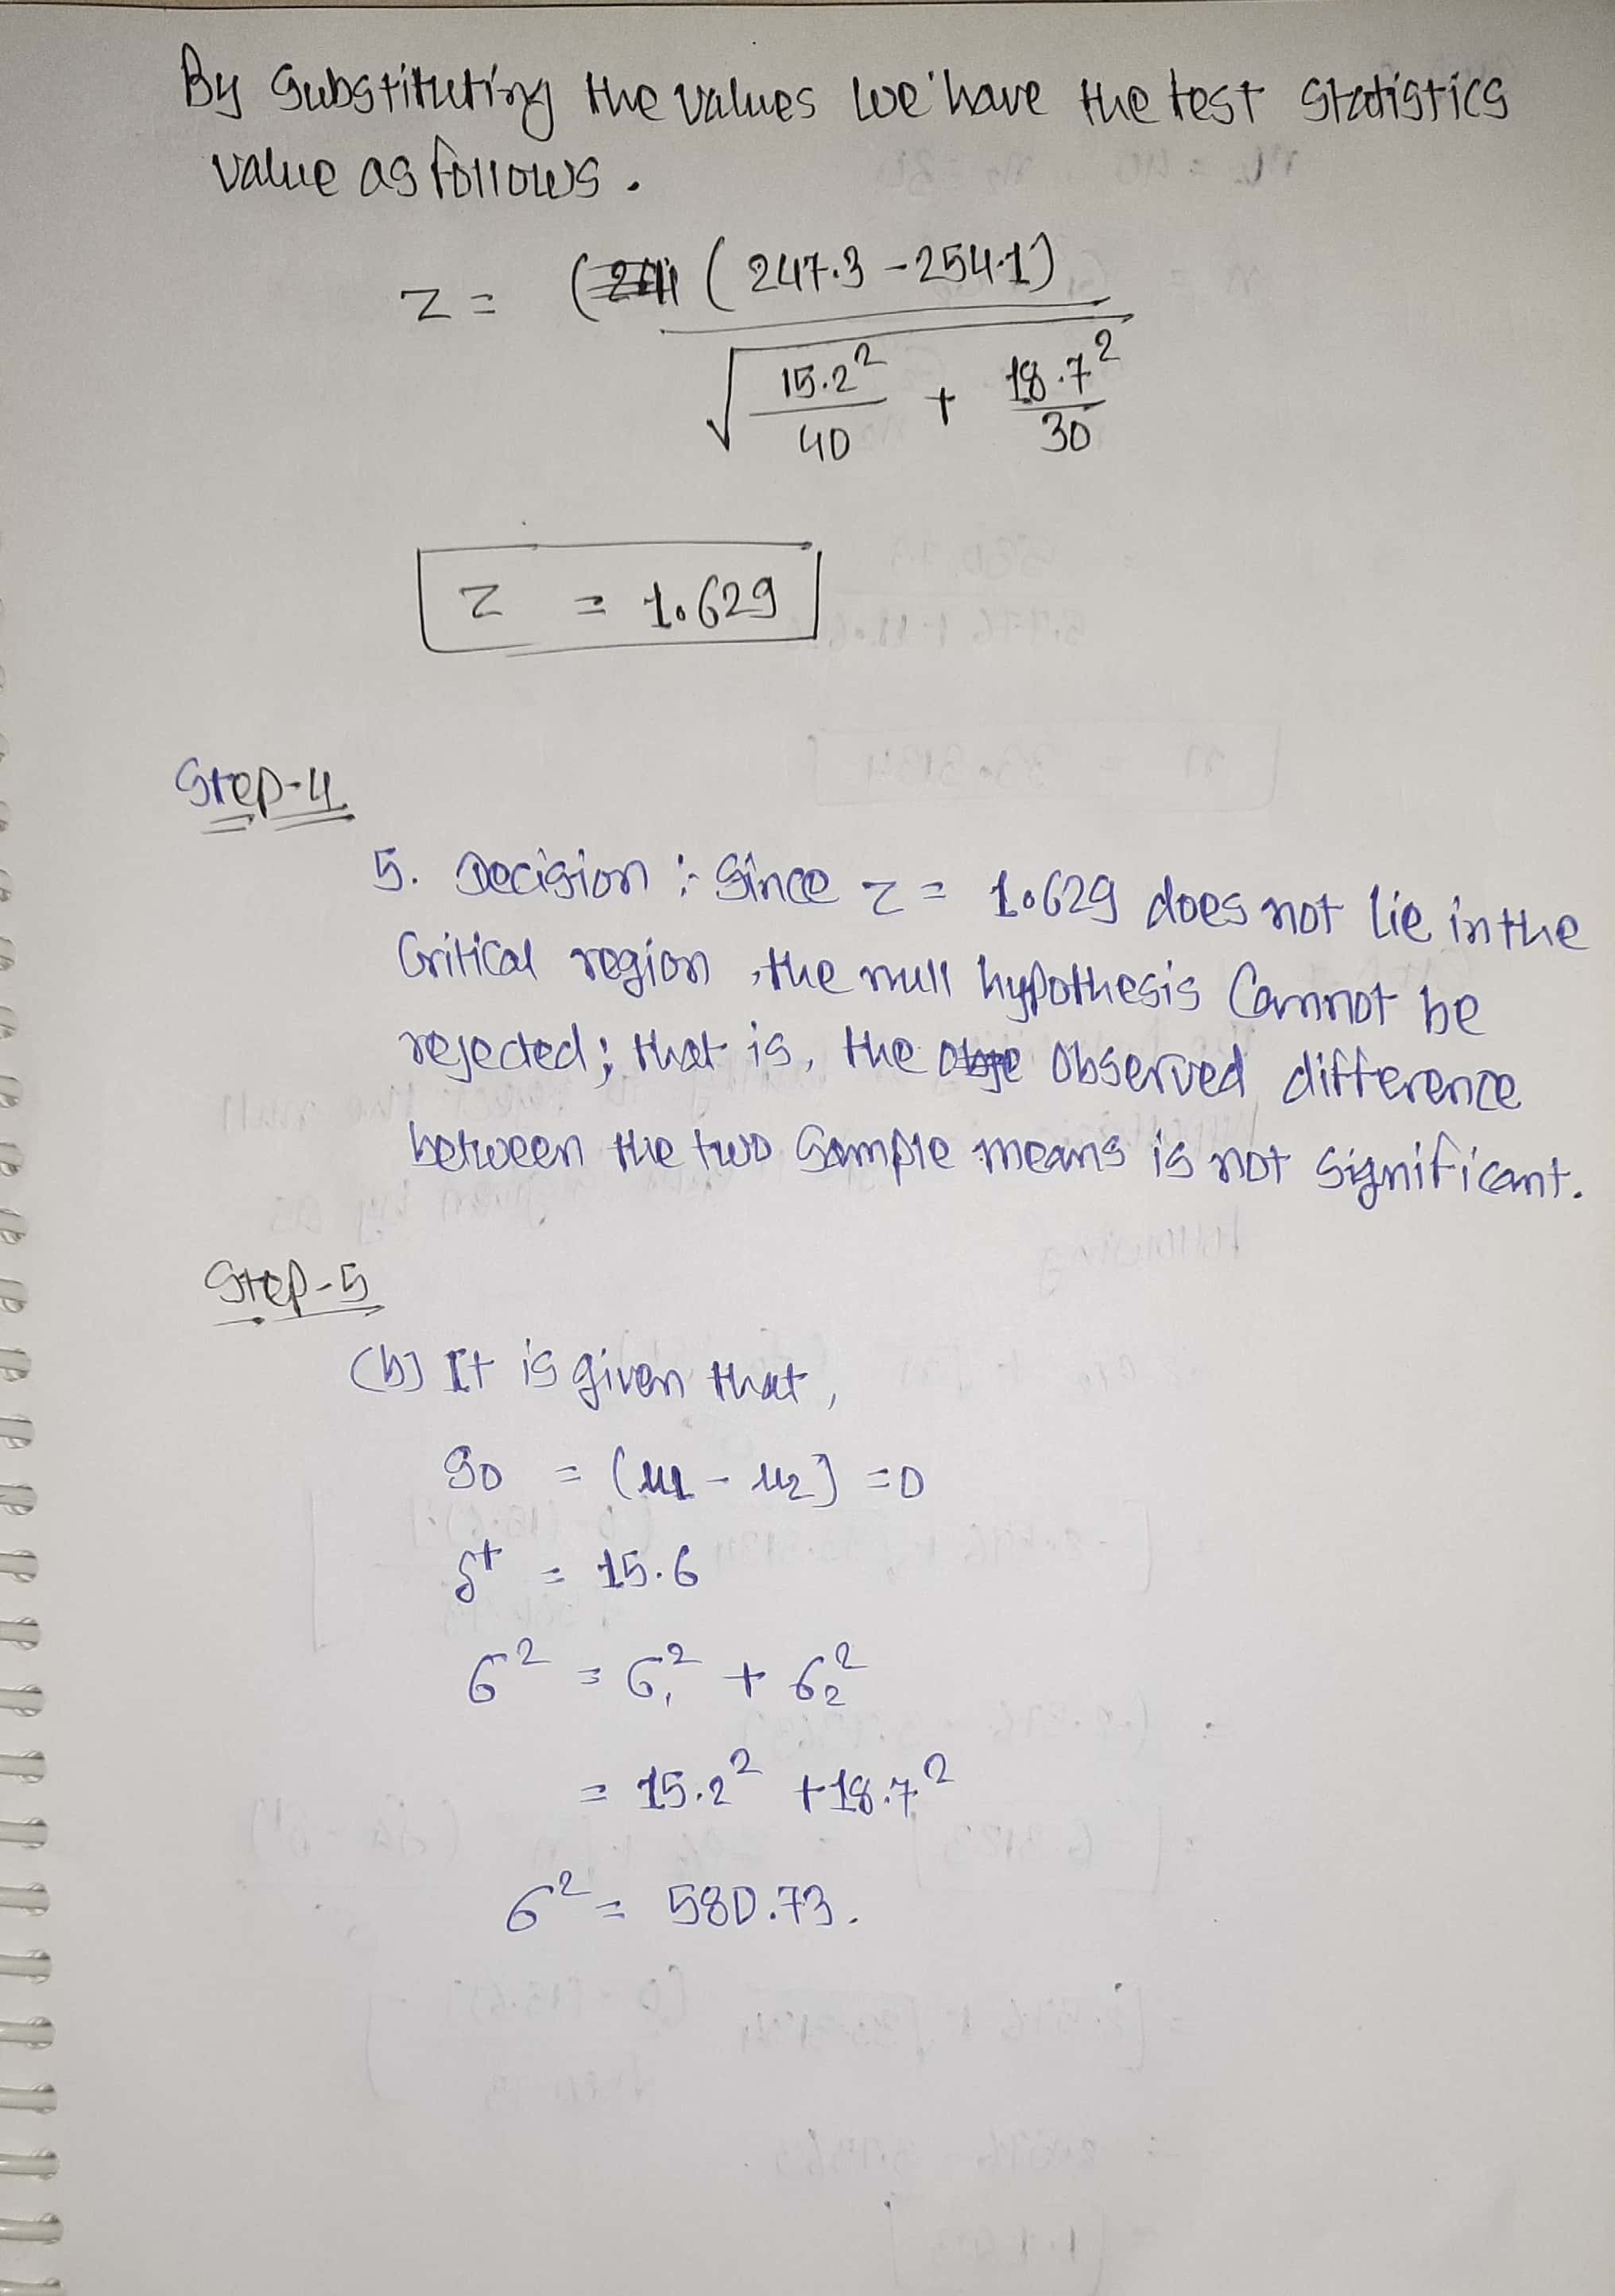 By Substituting the values we have the test Statistics
value as follows.
z = (247.3 - 254.1)
√ 15.2² / 40 + 18.7² / 30
z = 1.629
Step-4
5. Decision :- Since z = 1.629 does not lie in the
Critical region, the null hypothesis Cannot be
rejected; that is, the observed difference
between the two Sample means is not significant.
Step-5
(b) It is given that,
δ0 = (μ1 - μ2) = 0
δ+ = 15.6
σ² = σ1² + σ2²
= 15.2² + 18.7²
σ² = 580.73.